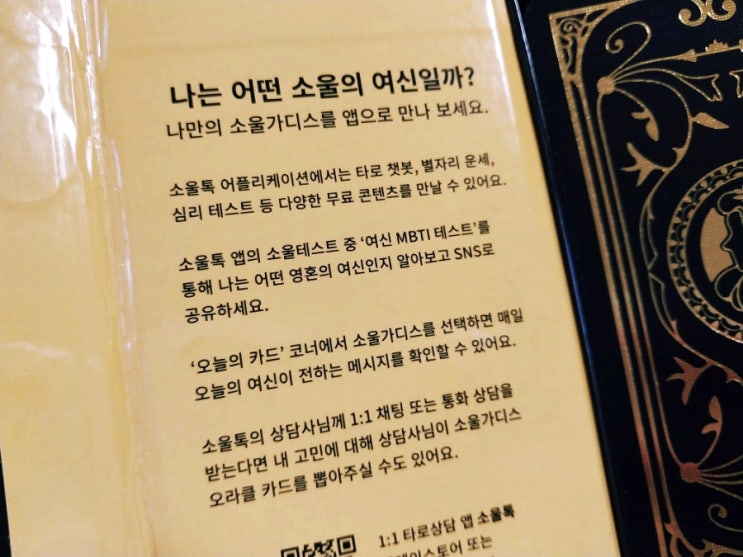 나는 어떤 소울의 여신일까?
나만의 소울가디스를 앱으로 만나 보세요.
소울톡 어플리케이션에서는 타로 챗봇, 별자리 운세,
심리 테스트 등 다양한 무료 콘텐츠를 만날 수 있어요.
소울톡 앱의 소울테스트 중 '여신 MBTI 테스트'를
통해 나는 어떤 영혼의 여신인지 알아보고 SNS로
공유하세요.
'오늘의 카드' 코너에서 소울가디스를 선택하면 매일
오늘의 여신이 전하는 메시지를 확인할 수 있어요.
소울톡의 상담사님께 1:1 채팅 또는 통화 상담을
받는다면 내 고민에 대해 상담사님이 소울가디스
오라클 카드를 뽑아주실 수도 있어요.
1:1 타로상담 앱 소울톡
또는